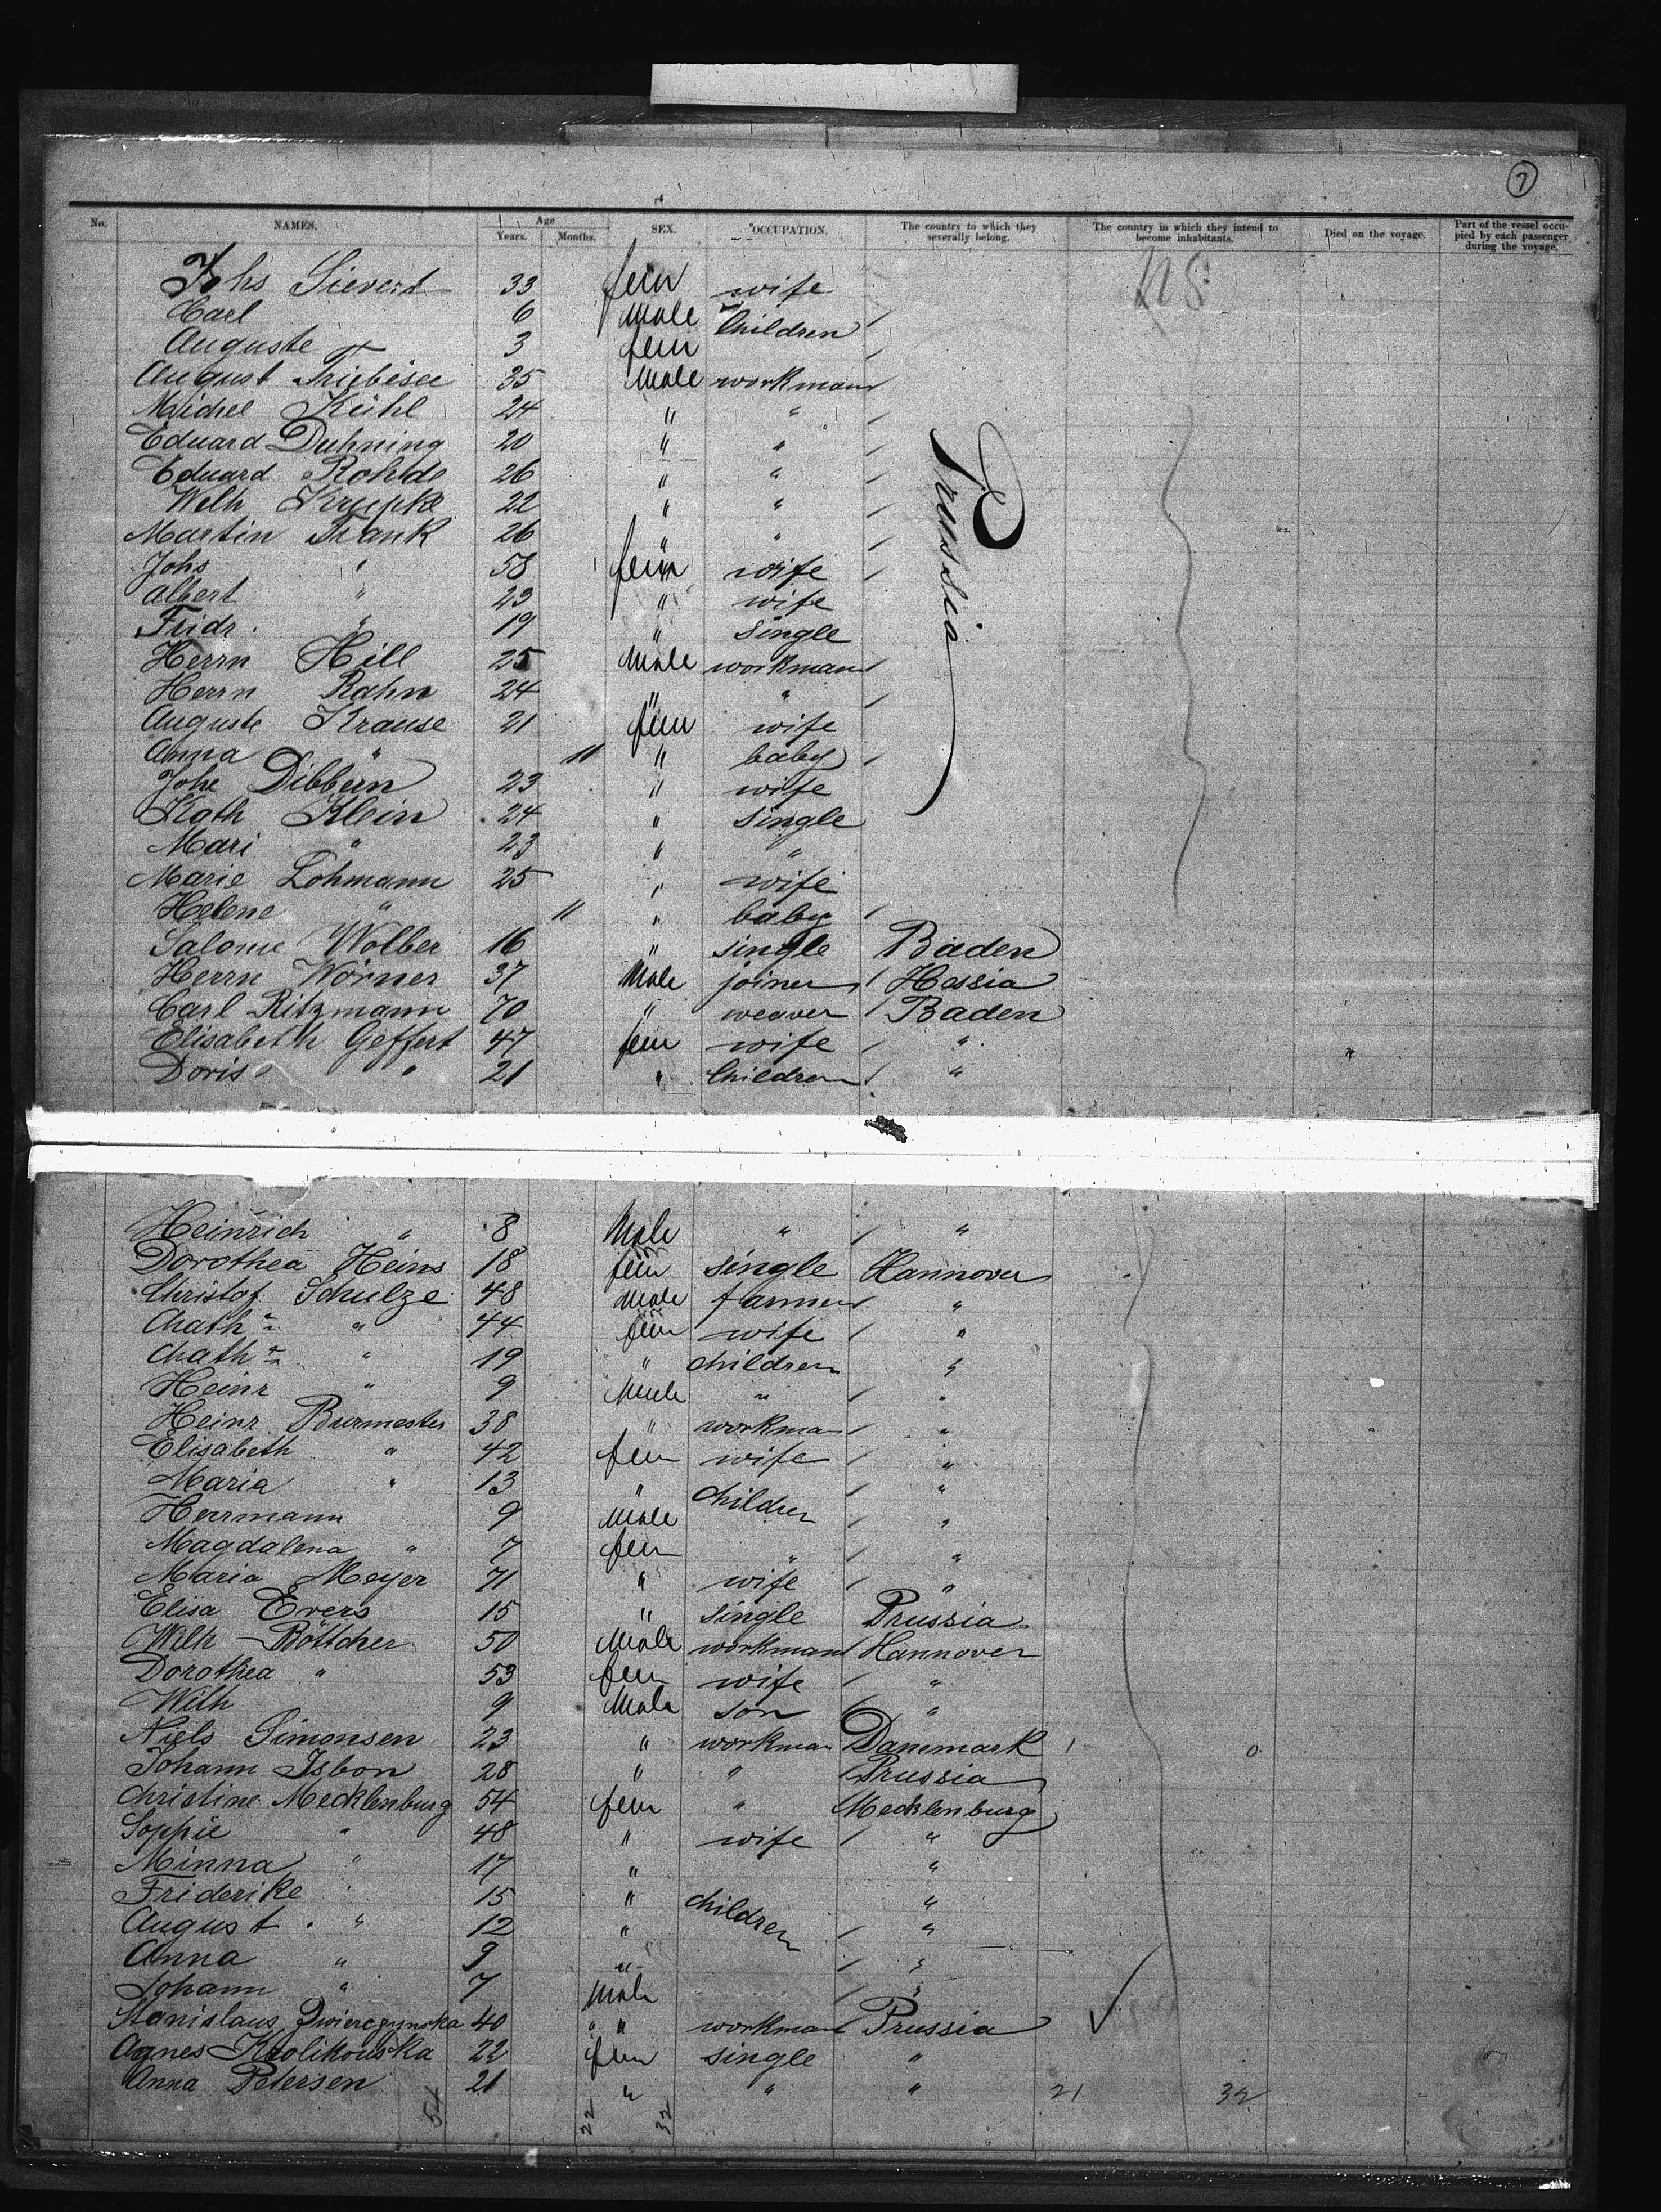 7
No. NAMES. Age Years. Months. SEX. OCCUPATION. The country to which they severally belong. The country in which they intend to become inhabitants. Died on the voyage. Part of the vessel occupied by each passenger during the voyage.
Johs Sievert 33 fem wife US
Carl 6 Male Children
Auguste 3 fem
August Tribesee 35 Male workman
Michel Kühl 24 " "
Eduard Duhning 20 " "
Eduard Rohde 26 " "
Wilh Krupke 22 " "
Prussia
Martin Frank 26 " "
Johs " 58 fem wife
Albert " 23 " wife
Fridr. " 19 " Single
Herrn Hill 25 Male workman
Herrn Rahn 24 " "
Auguste Krause 21 fem wife
Anna " 11 " baby
Johe Dibbern 23 " wife
Kath Klein 24 " Single
Mari " 23 " "
Marie Lohmann 25 " wife
Helene " 11 " baby
Salome Wolber 16 " single Baden
Herrn Wörner 37 Male joiner Hessia
Carl Ritzmann 70 " weaver Baden
Elisabeth Geffert 47 fem wife "
Doris " 21 " Children "
Heinrich " 8 Male " "
Dorothea Heins 18 fem single Hannover
Christof Schulze 48 Male farmer "
Chath " 44 fem wife "
Chath " 19 " children "
Heinr " 9 Male " "
Heinr Burmester 38 " workman "
Elisabeth " 42 fem wife "
Maria " 13 " Children "
Herrmann 9 Male "
Magdalena " 7 fem " "
Maria Meyer 71 " wife "
Elisa Evers 15 " single Prussia
Wilh Böttcher 50 Male workman Hannover
Dorothea " 53 fem wife "
Wilh 9 Male son "
Niels Simonsen 23 " workman Danemark
Johann Isbon 28 " " Prussia
Christine Mecklenburg 54 fem " Mecklenburg
Soppie " 48 " wife "
Minna " 17 " "
Friderike " 15 " children "
August " 12 " "
Anna " 9 " "
Johann " 7 Male "
Stanislaus Zwierczynska 40 " " workman Prussia
Agnes Krolikouska 22 fem single "
Anna Petersen 21 " " " 21 32
54 22 32